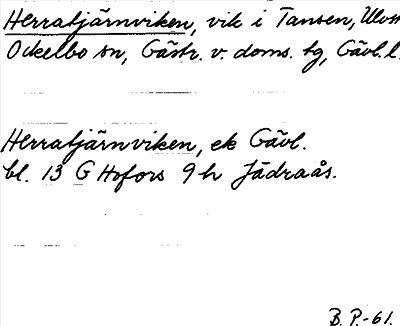 Herratjärnviken, vik i Tansen,
Ockelbo sn, Gästr. v. doms. tg, Gävl. l.
Herratjärnviken, ek Gävl.
bl. 13 G Hofors 9 h Jädraås.
B. P.-61.